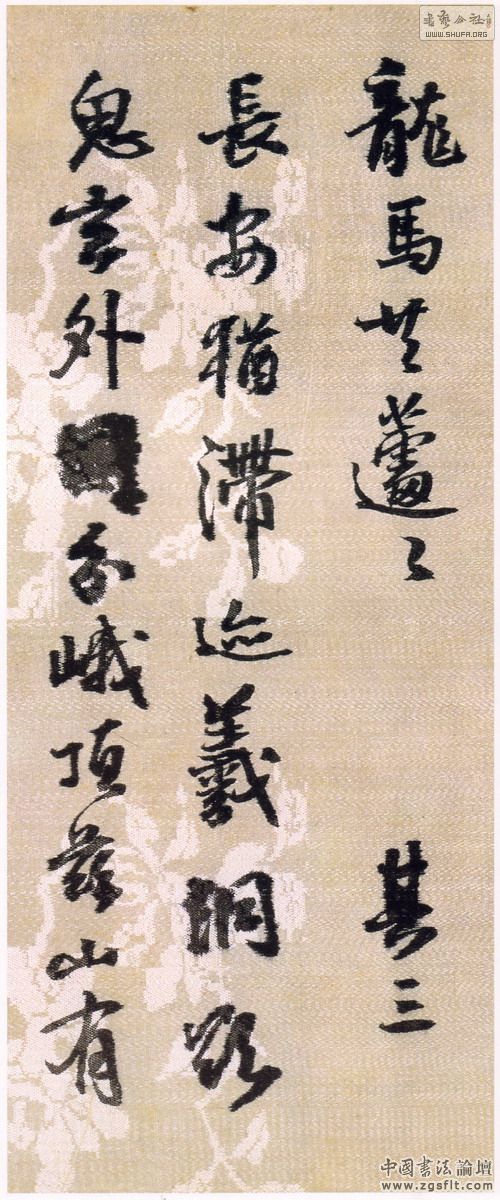 書藝公社
WWW.SHUFA.ORG
龍馬共蘧〻 其三
長安猶滯迹羲洞
言外分峨頂茲山有
中國書法論壇
www.zgsflt.com